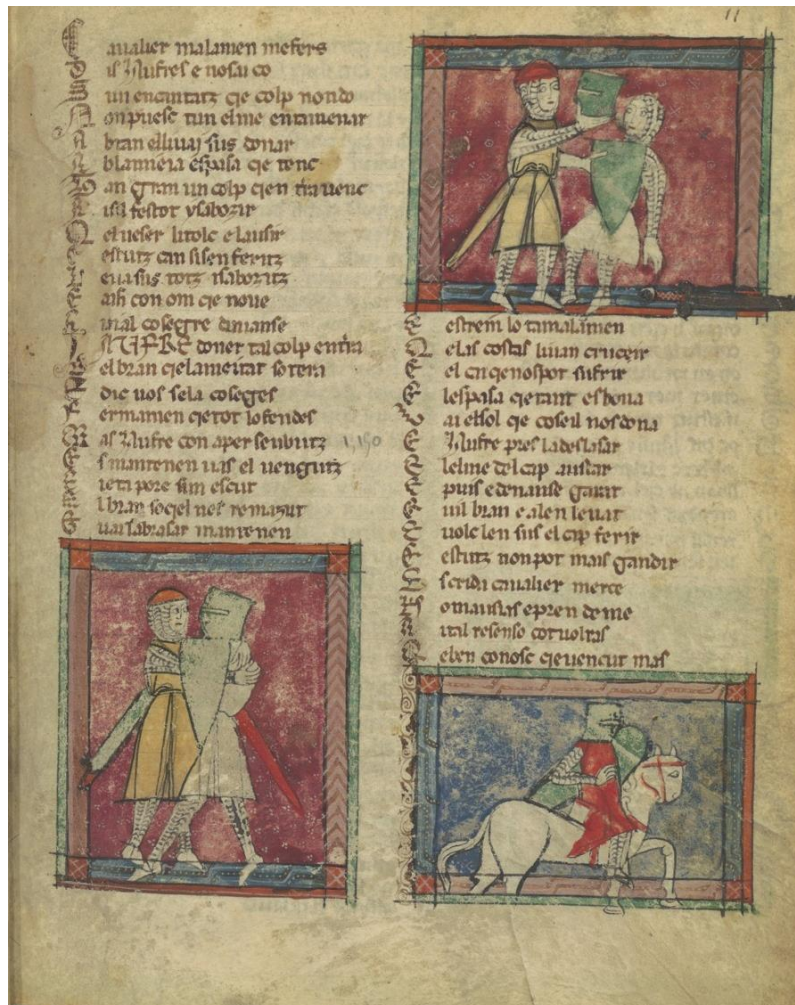 11
Cavalier malamen mefers
D is Jaufres e nosai co
S un encantatz qe colp nondo
N on puesc tun elme entamenar
A bran elluiai sus donar
A b lanneia espasa qe tenc
B an gran un colp qen travenc
K isil fes tot
Q el veser li tolc e lausir
E estutz can si sen feritz
E vasus totz
aisi con om qe no ve
mal cosegre denanse
JAUFRE doner tal colp en tra
el bran qe lameitat so tera
E dic vos sela coseges
F ermamen qe tot lo fendes
M as Jaufre con aperseubutz 1,150
E s mantenen vas el vengutz
ieta pore sim escut
E l bran so ciel nes remazut
E vai labrasar mantenen
E estrein lo tan malamen
Q e las costas li van cruceir
E el cn qe nos pot sufrir
E lespasa qe tant es bona
V ai el sol qe coseil nos dona
E Jaufre pres la deslasar
E lelme del cap a ustar
E puis e denanse gitat
E vil bran e a len levat
E volc len sus el cap ferir
E estutz non pot mais gandir
E scrida cavalier merce
N om ausias e pren de me
A ital resenso co tu voltas
Q e ben conosc qe vencut mas